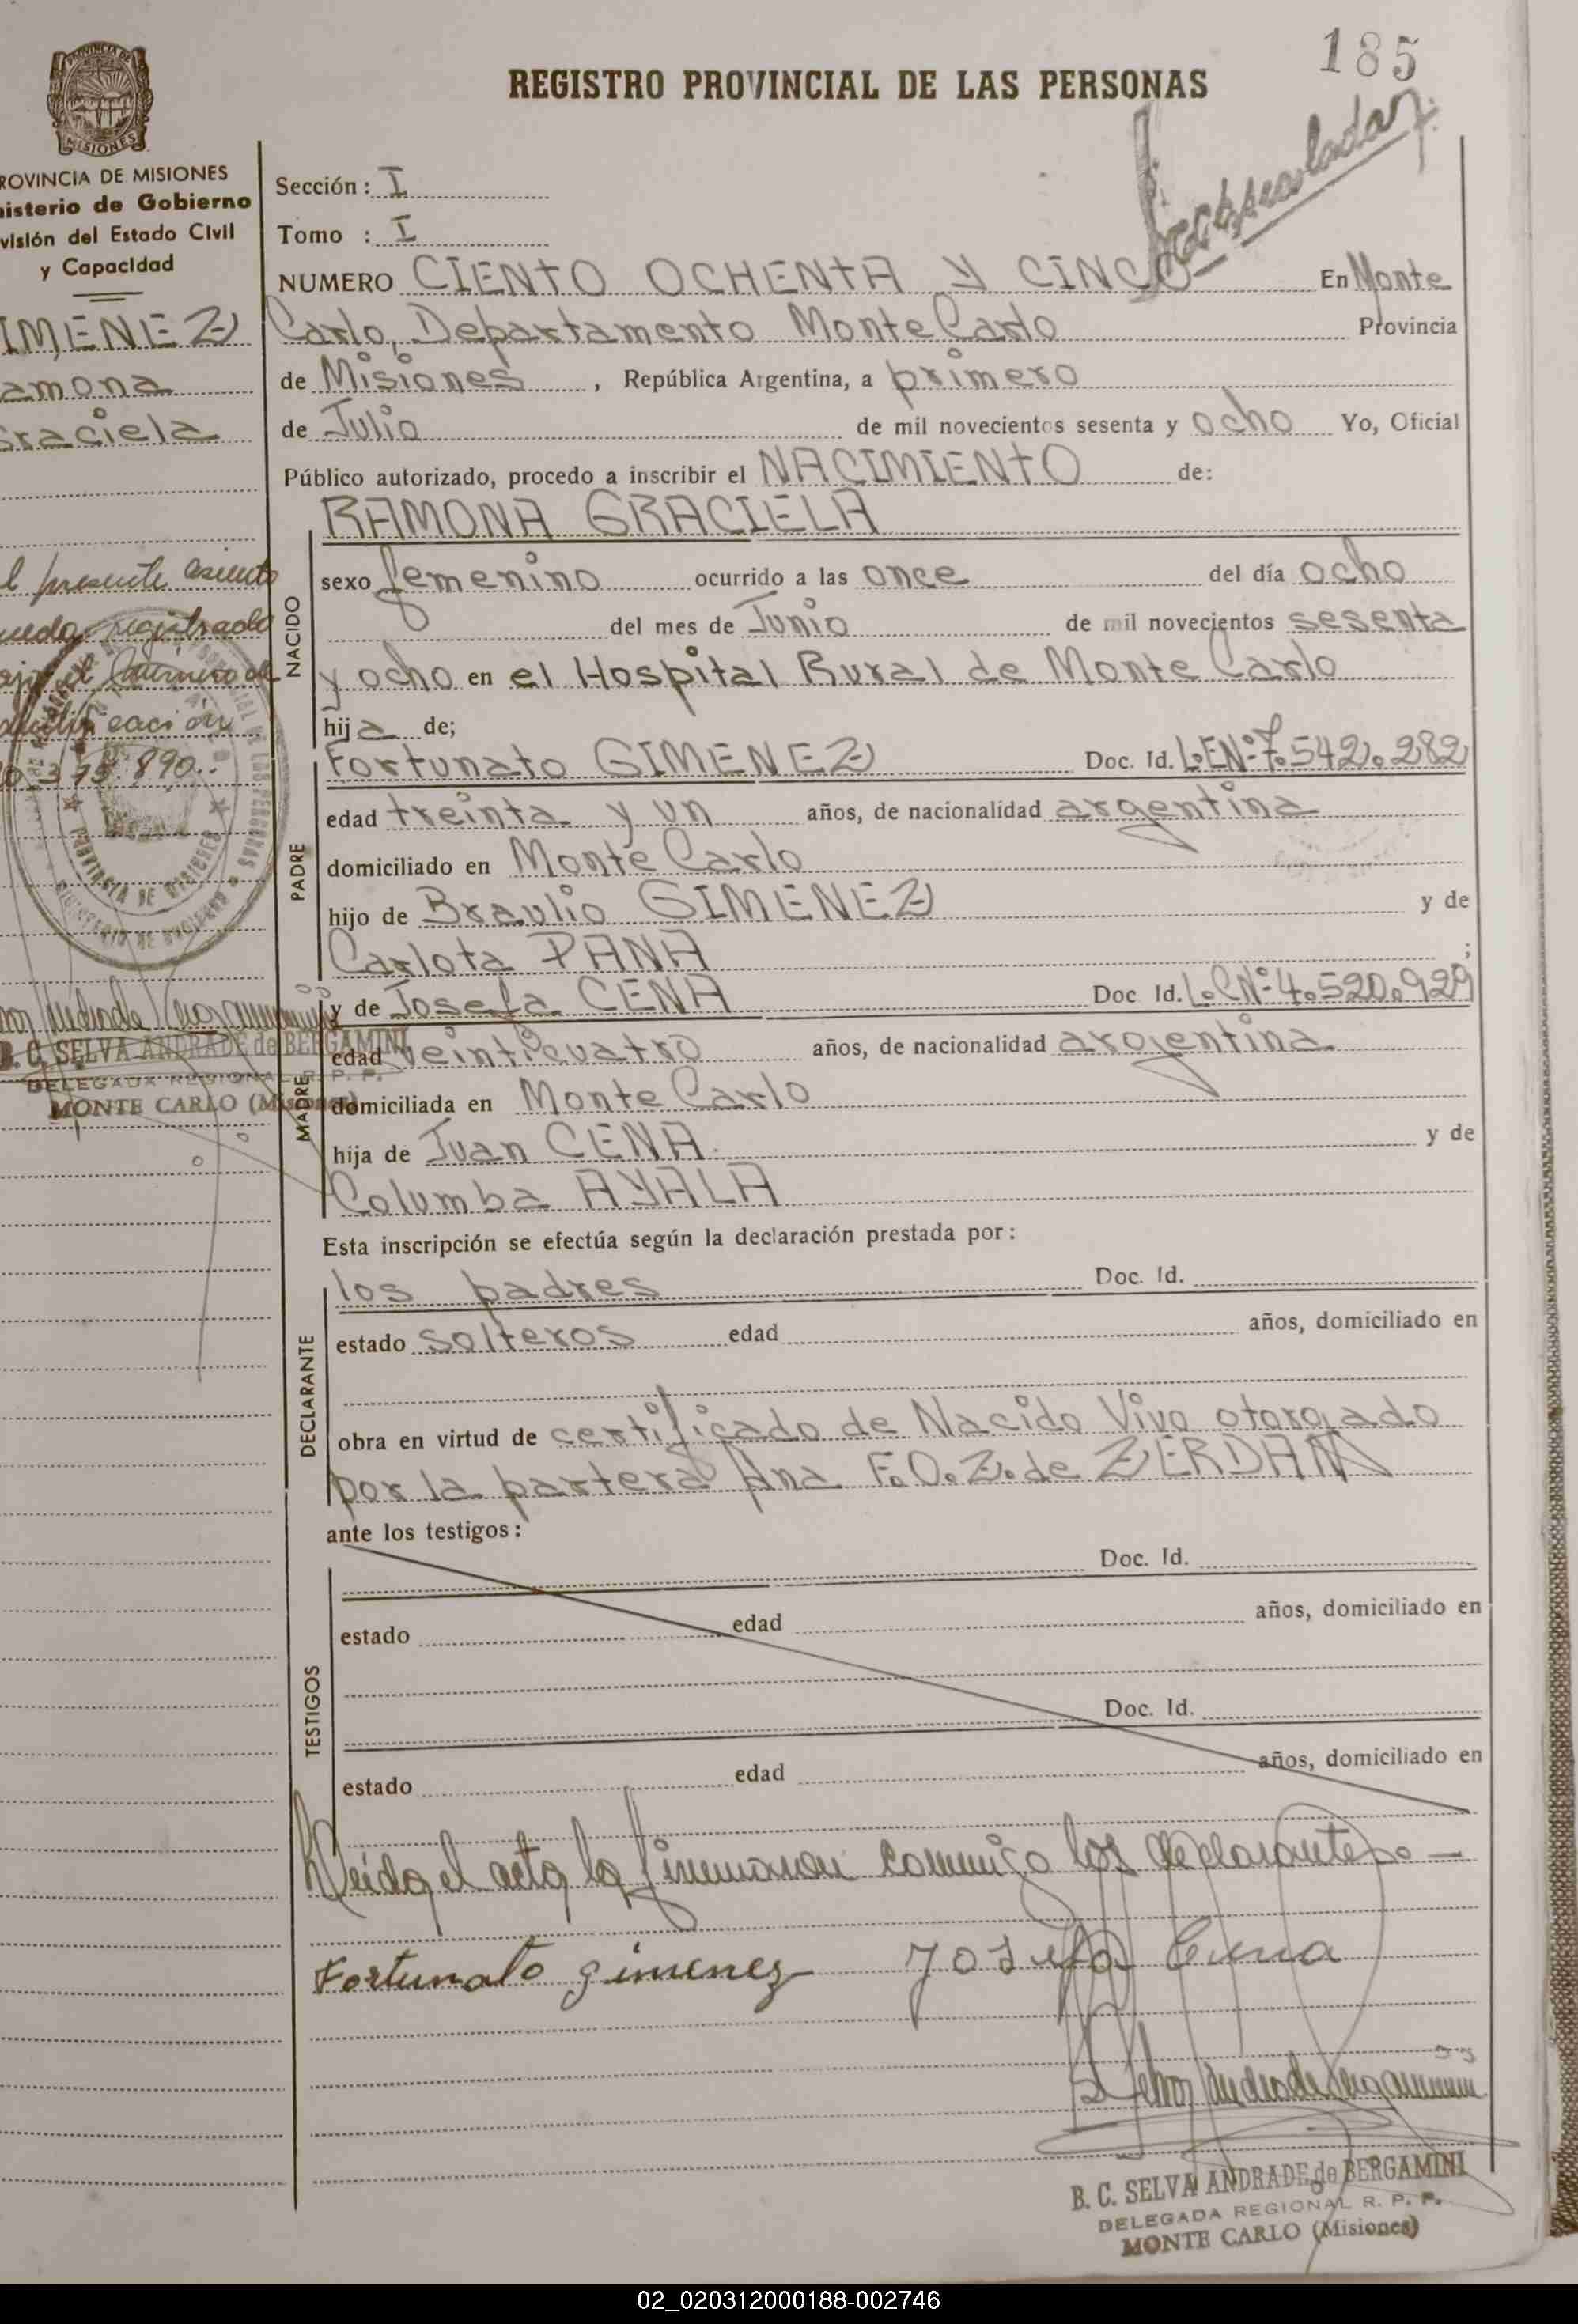 185
REGISTRO PROVINCIAL DE LAS PERSONAS
PROVINCIA DE
MISIONES
ROVINCIA DE MISIONES
nisterio de Gobierno
visión del Estado Civil
y Capacidad
IMENEZ
amona
raciela
l presente asiento
uedo registrado
el número de
890
B. C. SELVA ANDRADE de BERGAMINI
DELEGADA REGIONAL R. P. P.
MONTE CARLO (Misiones)
Sección: I
Tomo : I
NUMERO CIENTO OCHENTA Y CINCO En Monte
Carlo, Departamento Monte Carlo Provincia
de Misiones, República Argentina, a primero
de Julio de mil novecientos sesenta y ocho Yo, Oficial
Público autorizado, procedo a inscribir el NACIMIENTO de:
NACIDO
RAMONA GRACIELA
sexo femenino ocurrido a las once del día ocho
del mes de Junio de mil novecientos sesenta
y ocho en el Hospital Rural de Monte Carlo
hija de;
PADRE
Fortunato GIMENEZ Doc. Id. L.E.Nº 7.542.282
edad treinta y un años, de nacionalidad argentina
domiciliado en Monte Carlo
hijo de Braulio GIMENEZ y de
Carlota PANA ;
MADRE
y de Josefa CENA Doc Id. L.C.Nº 4.520.929
edad veinticuatro años, de nacionalidad argentina
domiciliada en Monte Carlo
hija de Juan CENA. y de
Columba AYALA
Esta inscripción se efectúa según la declaración prestada por:
DECLARANTE
los padres Doc. Id.
estado solteros edad años, domiciliado en
obra en virtud de certificado de Nacido Vivo otorgado
por la partera Ana F.O.Z. de ZERDAN
ante los testigos:
TESTIGOS
Doc. Id.
estado edad años, domiciliado en
Doc. Id.
estado edad años, domiciliado en
Leída el acta la firmaron conmigo los declarantes.—
Fortunato Gimenez Josefa Cena
B. C. SELVA ANDRADE de BERGAMINI
DELEGADA REGIONAL R. P. P.
MONTE CARLO (Misiones)
02_020312000188-002746